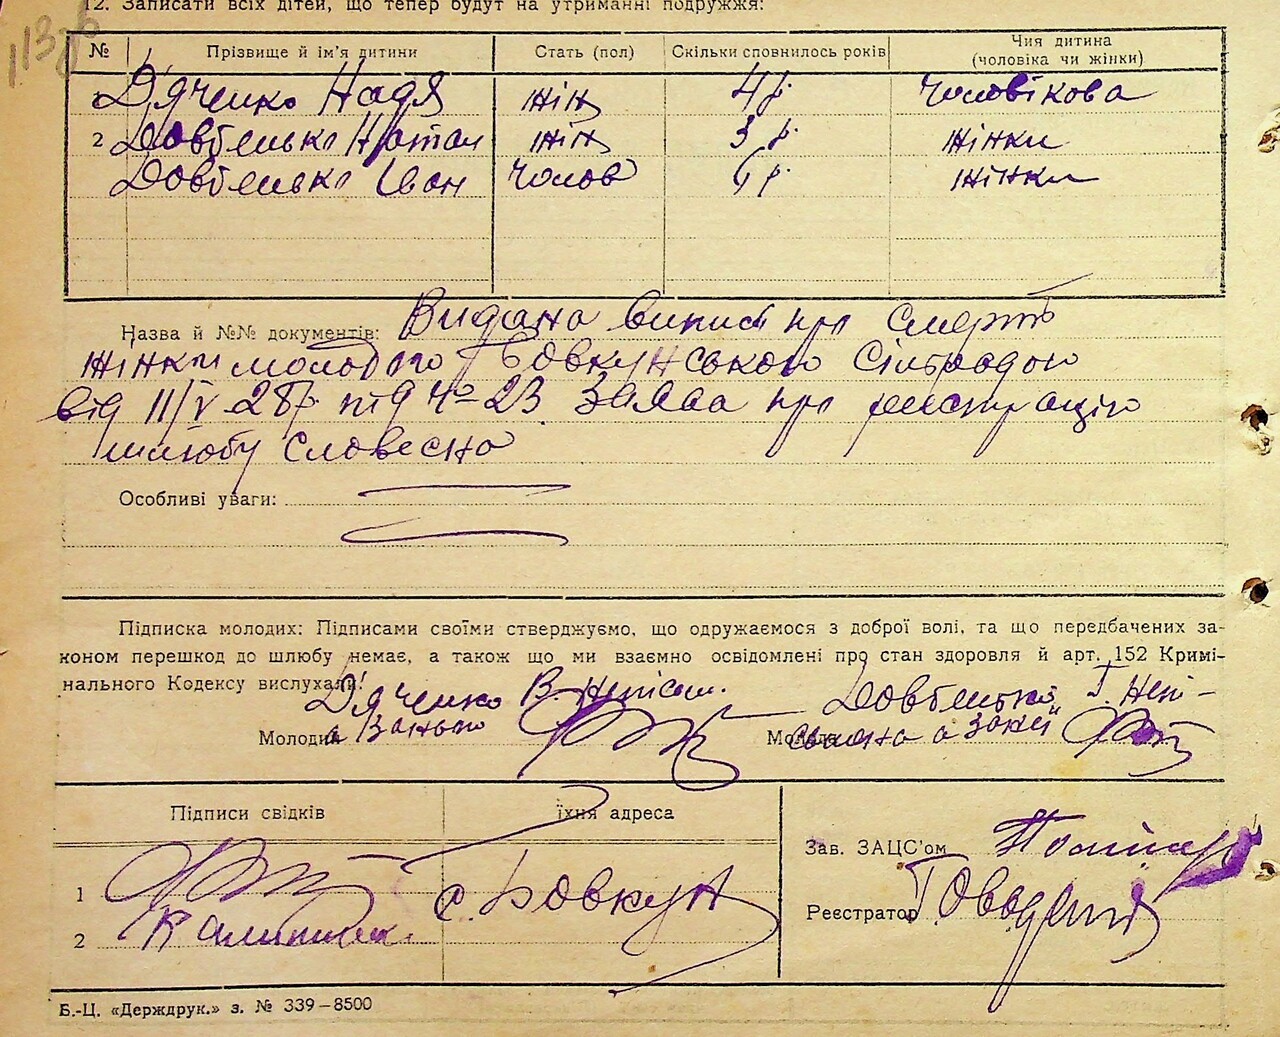 12. Записати всіх дітей, що тепер будут на утриманні подружжя:
№ Прізвище й ім'я дитини Стать (пол) Скільки сповнилось років Чия дитина (чоловіка чи жінки)
1 Дяченко Надя жін 4 р. Чоловікова
2 Довбенько Натал жін 3 р. жінки
Довбенько Іван Чолов 6 р. жінки
Назва й №№ документів: Видана випись про смерть
жінки молодого Бовкунською Сільрадою
від 11/V 28 р. під Ч° 23 Заява про реєстрацію
шлюбу словесна
Особливі уваги:
Підписка молодих: Підписами своїми стверджуємо, що одружаємося з доброї волі, та що передбачених за-
коном перешкод до шлюбу немає, а також що ми взаємно освідомлені про стан здоровля й арт. 152 Кримі-
нального Кодексу вислухали:
Дяченко В. Непісьм. Довбенько Г. Непі-
Молодий а за нього Молода сьмена а за неї
Підписи свідків їхня адреса
1
2 с. Бовкун
Зав. ЗАЦС'ом
Реєстратор
Б.-Ц. «Держдрук.» з. № 339—8500